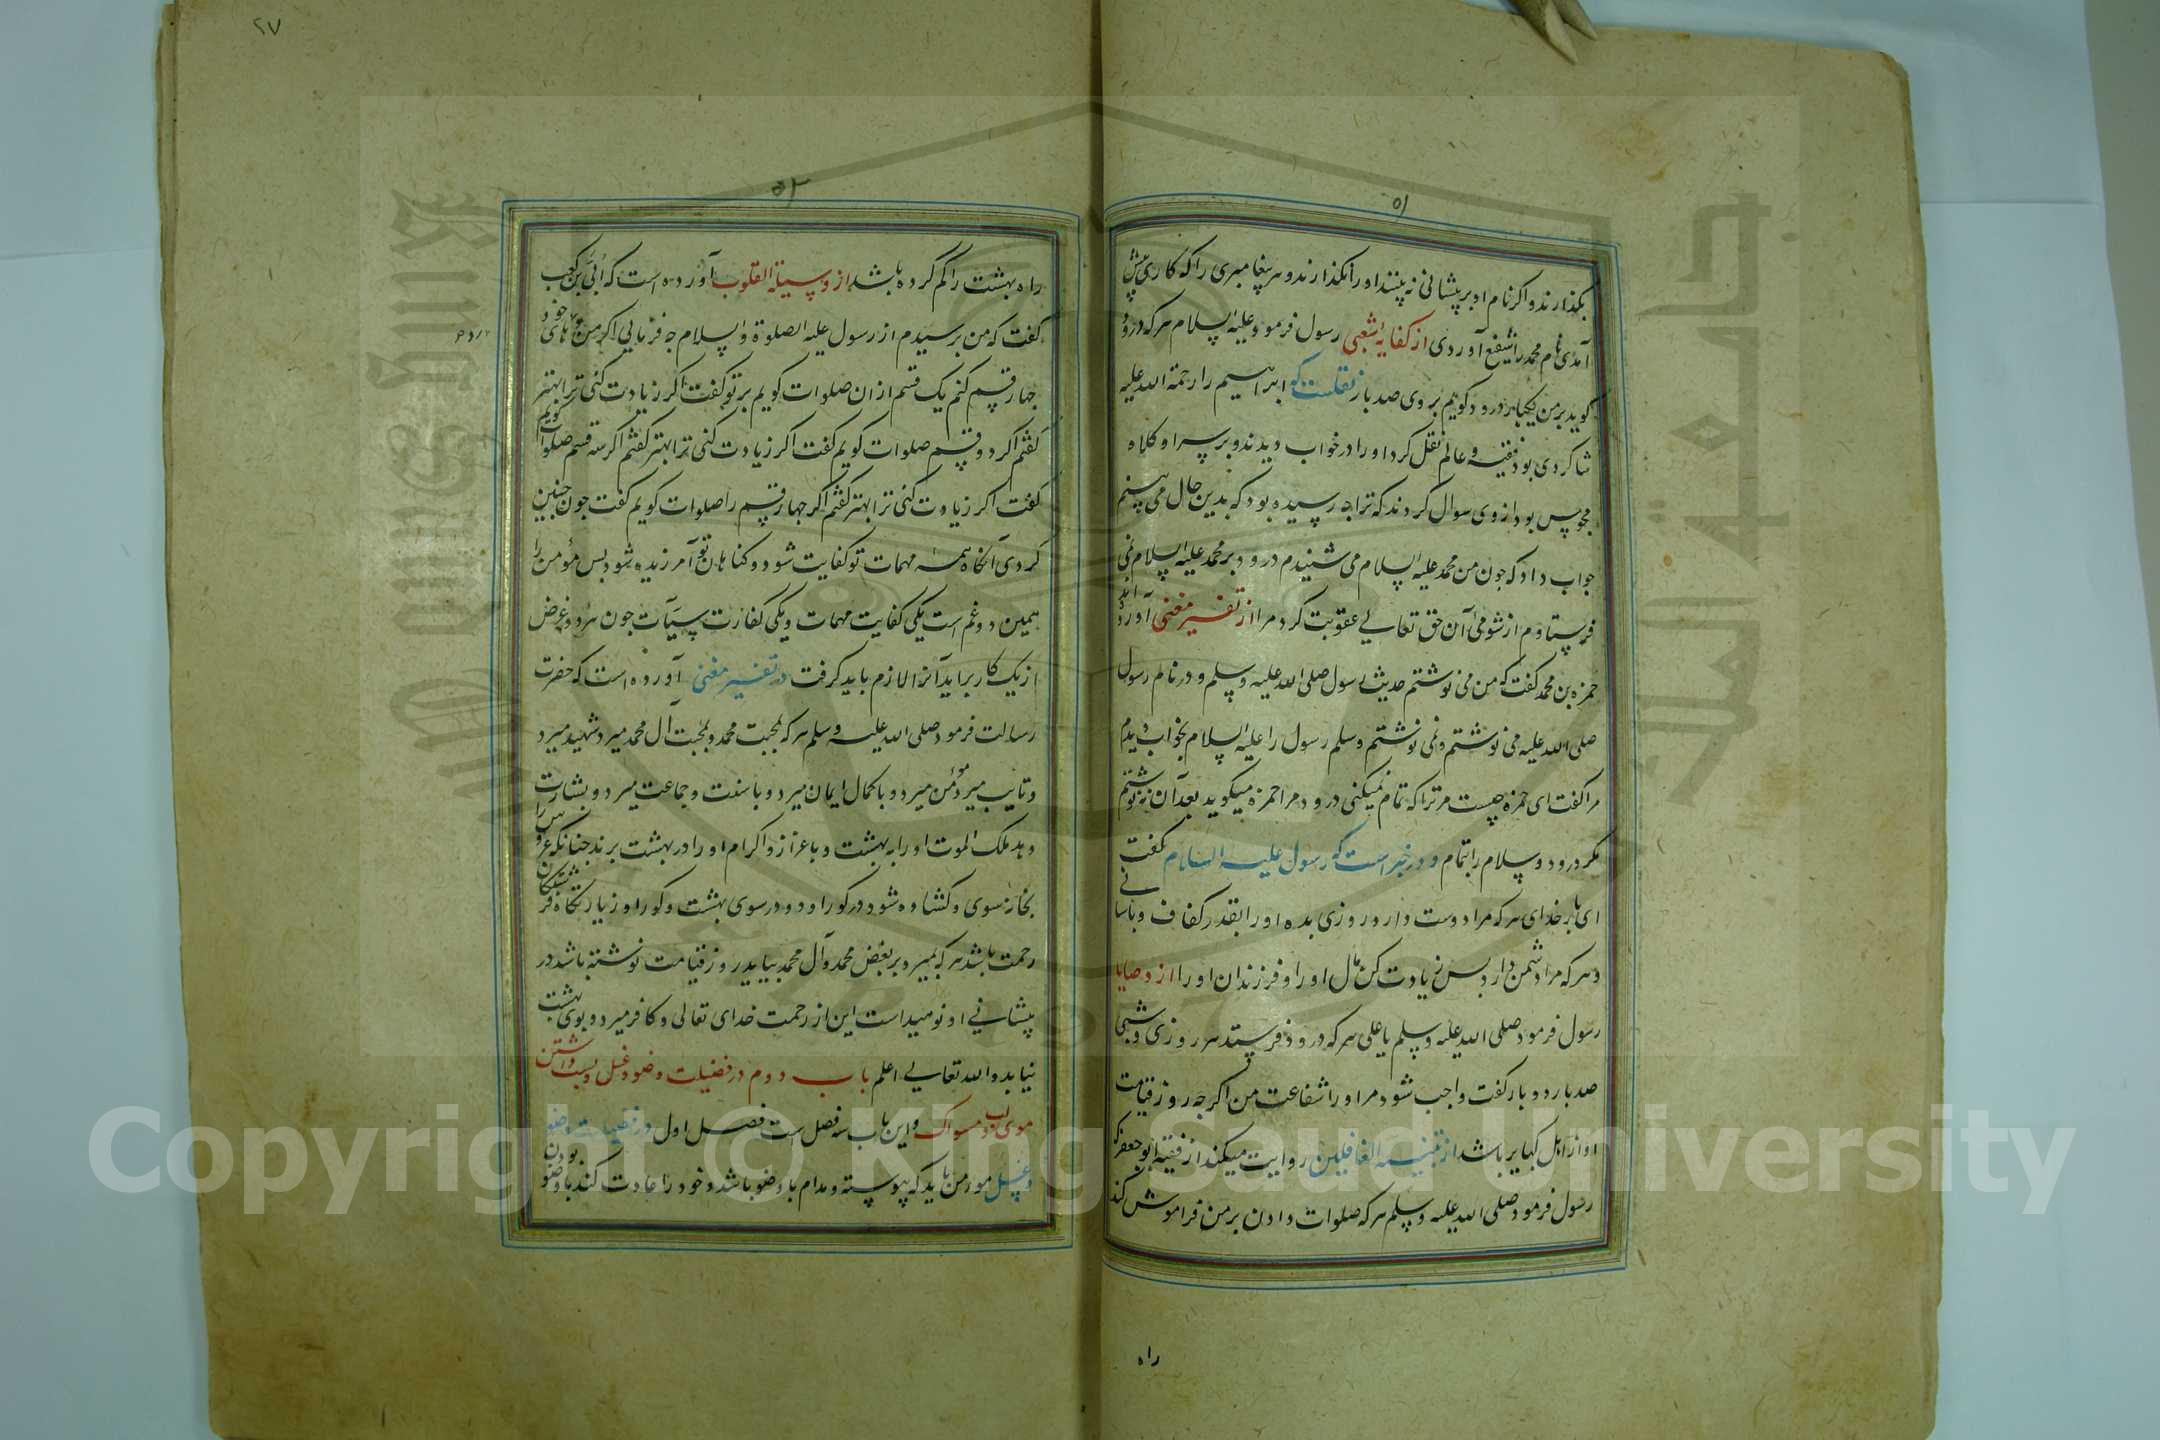 ۵۱
بکذارند و اکر نام او بر پیشانی نه بینند او را نکذارند و هر پیغامبری را که کاری پیش
آمدی نام محمد را شفیع آوردی از کفایه شعبی رسول فرمود علیه السلام هر که درود
کوید بر من یکبار درود کویم بر وی صد بار نقلست کو ابراهیم را رحمة الله علیه
شاکردی بود فقیه و عالم نقل کرد او را در خواب دیدند و بر سر او کلاه
مجوس بود از وی سوال کردند که ترا چه رسیده بود که بدین حال می بینم
جواب داد که جون من محمد علیه السلام می شنیدم درود بر محمد علیه السلام نمی
فرستادم از شومی آن حق تعالی عقوبت کرد مرا از تفسیر مغنی آورده اند
حمزه بن محمد کفت که من می نوشتم حدیث رسول صلی الله علیه وسلم و در نام رسول
صلی الله علیه می نوشتم و نمی نوشتم وسلم رسول را علیه السلام بخواب دیدم
مرا کفت ای حمزه چیست مر ترا که تمام نمیکنی درود مرا حمزه میکوید بعد آن نه نوشتم
مکر درود و سلام را بتمام و در خبر است که رسول علیه السلام کفت
ای بار خدای هر که مرا دوست دارد روزی بده او را بقدر کفاف و باسانی
و هر که مرا دشمن دارد بس زیادت کن مال او را و فرزندان او را از وصایا
رسول فرمود صلی الله علیه وسلم یا علی هر که درود فرستد هر روزی و شبی
صد بار دو بار کفت واجب شود مر او را شفاعت من اکرچه روز قیامت
او از اهل کبایر باشد از تنبیه الغافلین روایت میکند از فقیه ابو جعفر که
رسول فرمود صلی الله علیه وسلم هر که صلوات دادن بر من فراموش کند
راه
۲۷
۵۲
راه بهشت را کم کرده باشد از وسیلة القلوب آورده است که ابی بن کعب
کفت که من برسیدم از رسول علیه الصلوة والسلام چه فرمایی اکر من دعاهای خود
جهار قسم کنم یک قسم از ان صلوات کویم بر تو کفت اکر زیادت کنی ترا بهتر
کفتم اکر دو قسم صلوات کویم کفت اکر زیادت کنی ترا بهتر کفتم اکر سه قسم صلوات کویم
کفت اکر زیادت کنی ترا بهتر کفتم اکر جهار قسم را صلوات کویم کفت جون جنین
کردی آنکاه همه مهمات تو کفایت شود و کناهان تو آمرزیده شود بس مؤمن را
همین دو غم است یکی کفایت مهمات و یکی کفارت سیآت جون هر دو غرض
از یک کار براید آنرا لازم باید کرفت در تفسیر مغنی آورده است که حضرت
رسالت فرمود صلی الله علیه وسلم هر که بمحبت محمد و بمحبت آل محمد میرد شهید میرد
و تایب میرد مؤمن میرد و با کمال ایمان میرد و با سنت و جماعت میرد و بشارت
دهد ملک الموت او را به بهشت و با عزاز و اکرام او را در بهشت برند جنانکه عروس را
بخانه شوی و کشاده شود در کور او دو در سوی بهشت و کور او زیارتکاه فرشتکان
رحمت باشد هر که بمیرد بر بغض محمد و آل محمد بیاید روز قیامت نوشته باشد در
پیشانی او نومید است این از رحمت خدای تعالی و کافر میرد و بوی بهشت
نیابد والله تعالی اعلم باب دوم در فضیلت وضو و غسل و بست داشتن
موی لب و مسواک و این باب سه فصل است فصل اول در فضیلت وضو
و غسل مؤمن باید که پیوسته و مدام با وضو باشد و خود را عادت کند با وضو بودن
Copyright © King Saud University